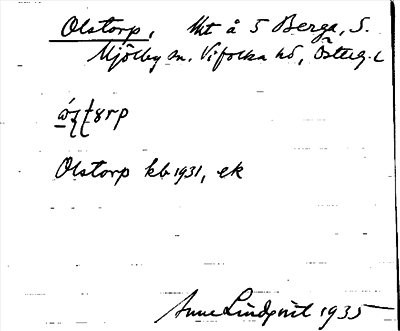 Olstorp, Ht å 5 Berga, S.
Mjölby sn. Vifolka hd, Österg. l
Olstorp kb 1931, ek
Anne Lindqvist 1935